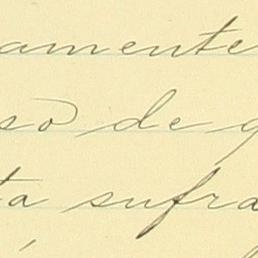 amente
so de g
ta sufra